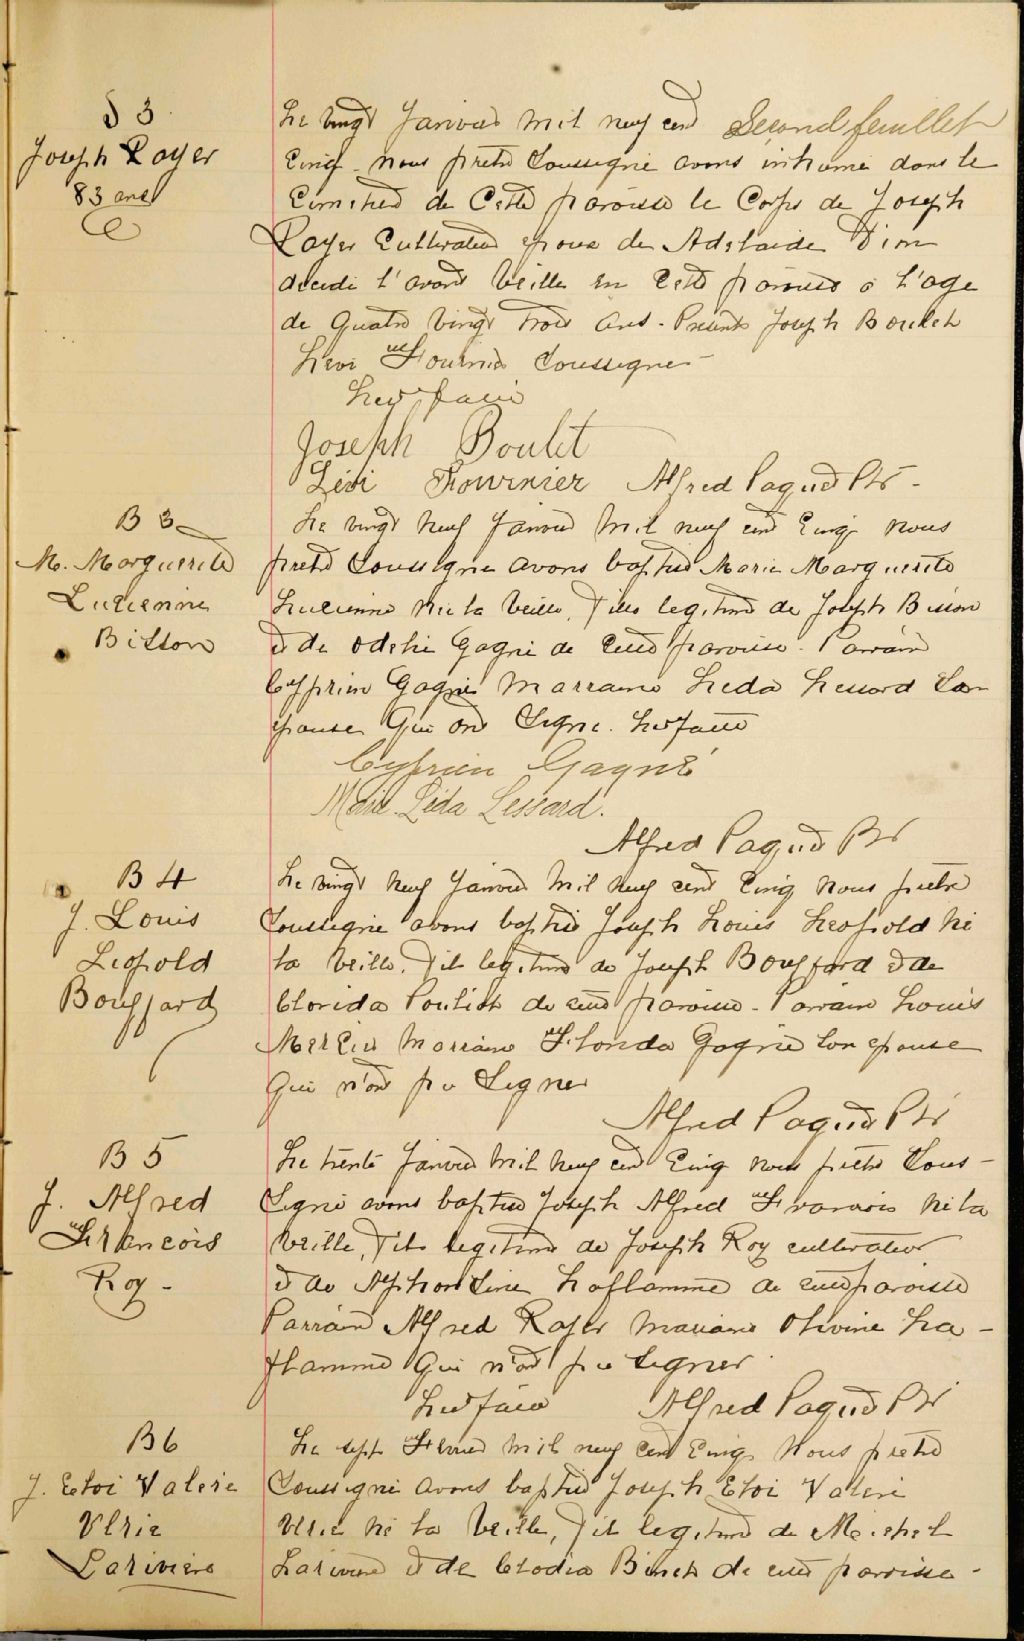 S 3
Joseph Royer
83 ans
Le vingt Janvier mil neuf cent Second feuillet
Cinq nous prêtre Soussigné avons inhumé dans le
Cimetière de Cette paroisse le Corps de Joseph
Royer Cultivateur époux de Adelaide Dion
décédé l'avant Veille en Cette paroisse à l'age
de Quatre Vingt Trois Ans. Présents Joseph Boulet
Levi Fournier Soussignés
Lecture faite
Joseph Boulet
Lévi Fournier Alfred Paquet Ptr
B 3
M. Marguerite
Lucienne
Bisson
Le vingt Neuf Janvier Mil neuf cent Cinq nous
prêtre Soussigné avons baptisé Marie Marguerite
Lucienne née la Veille, Fille légitime de Joseph Bisson
et de Odelie Gagné de cette paroisse. Parrain
Cyprien Gagné Marraine Leda Lessard Son
épouse Qui ont Signé. Lecture faite
Cyprien Gagné
Marie Léda Lessard.
Alfred Paquet Ptr
B 4
J. Louis
Leopold
Bouffard
Le vingt Neuf Janvier Mil neuf cent Cinq Nous prêtre
Soussigné avons baptisé Joseph Louis Leopold Né
la Veille, Fils légitime de Joseph Bouffard et de
Clorida Pouliot de cette paroisse. Parrain Louis
Mercier Marraine Florida Gagné Son épouse
Qui n'ont pu Signer
Alfred Paquet Ptr
B 5
J. Alfred
Francois
Roy -
Le trente Janvier Mil Neuf cent Cinq nous prêtre Sous-
Signé avons baptisé Joseph Alfred Francois Né la
Veille, Fils légitime de Joseph Roy cultivateur
et de Alphonsine Laflamme de cette paroisse
Parrain Alfred Royer Marraine Olivine La-
flamme Qui n'ont pu Signer
Lecture faite Alfred Paquet Ptr
B6
J. Eloi Valere
Ulric
Lariviere
Le sept Février Mil neuf Cent Cinq Nous prêtre
Soussigné avons baptisé Joseph Eloi Valere
Ulric Né la Veille, Fils légitime de Michel
Lariviere et de Clodia de cette paroisse -